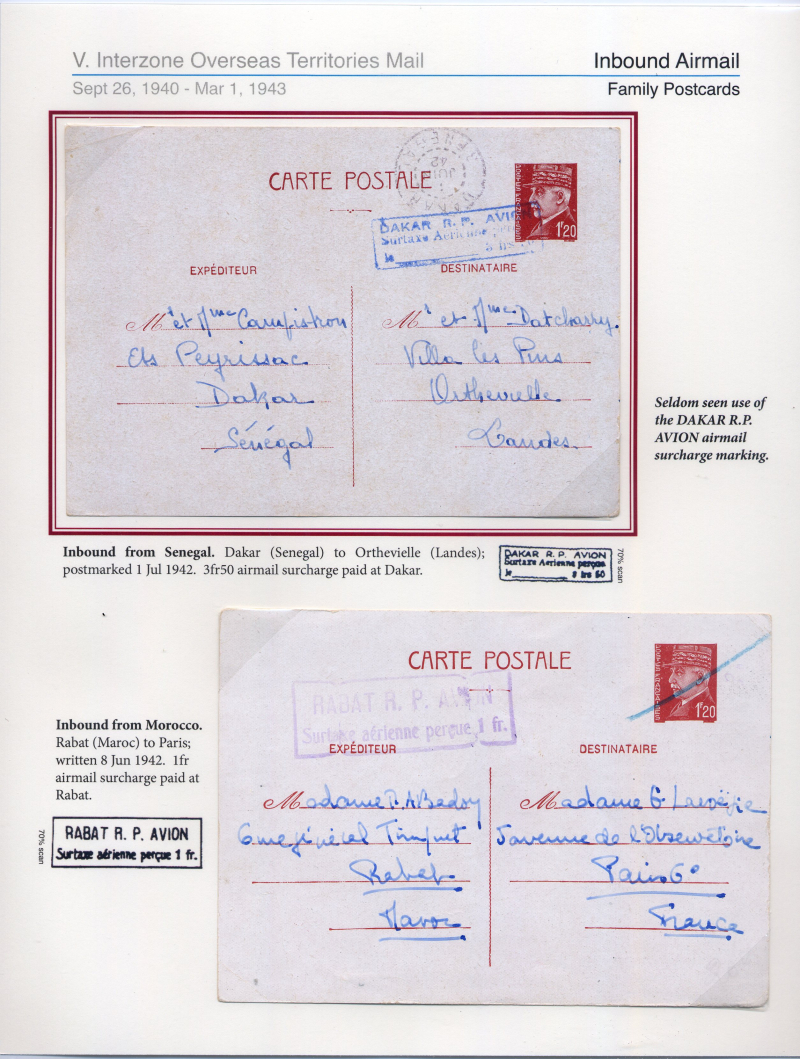 V. Interzone Overseas Territories Mail
Inbound Airmail
Sept 26, 1940 - Mar 1, 1943
Family Postcards
CARTE POSTALE
DAKAR
SÉNÉGAL
1
JUIL
42
1F20
DAKAR R.P. AVION
Surtaxe Aérienne perçue
le 3 frs 50
EXPÉDITEUR
DESTINATAIRE
Mr et Mme Campistron
Ets Peyrissac
Dakar
Sénégal
Mr et Mme Datcharry.
Villa les Pins
Orthevielle
Landes
Seldom seen use of
the DAKAR R.P.
AVION airmail
surcharge marking.
Inbound from Senegal. Dakar (Senegal) to Orthevielle (Landes);
postmarked 1 Jul 1942. 3fr50 airmail surcharge paid at Dakar.
DAKAR R. P. AVION
Surtaxe Aérienne perçue
le 3 frs 50
70% scan
CARTE POSTALE
1F20
RABAT R. P. AVION
Surtaxe aérienne perçue 1 fr.
EXPÉDITEUR
DESTINATAIRE
Madame
Rabat
Maroc
Madame G.
de l'Observatoire
Paris 6°
France
Inbound from Morocco.
Rabat (Maroc) to Paris;
written 8 Jun 1942. 1fr
airmail surcharge paid at
Rabat.
RABAT R. P. AVION
Surtaxe aérienne perçue 1 fr.
70% scan